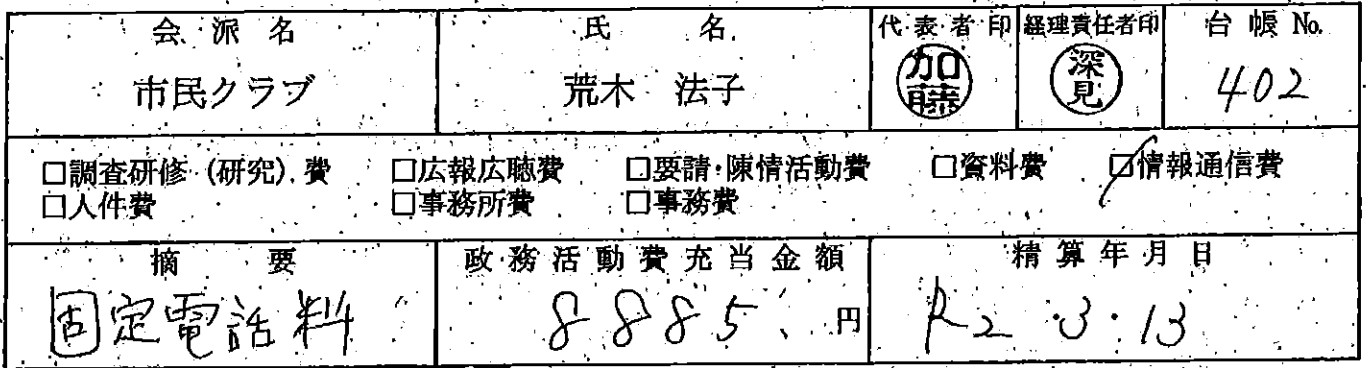 会派名 氏名 代表者印 経理責任者印 台帳No.
市民クラブ 荒木 法子 加藤 深見 402
□調査研修(研究)費 □広報広聴費 □要請・陳情活動費 □資料費 ☑情報通信費
□人件費 □事務所費 □事務費
摘要 政務活動費充当金額 精算年月日
固定電話料 8885 円 R2・3・13